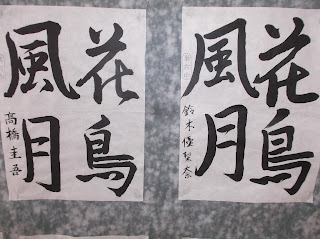 花鳥
風月
鈴木優梨奈
花鳥
風月
高橋圭吾